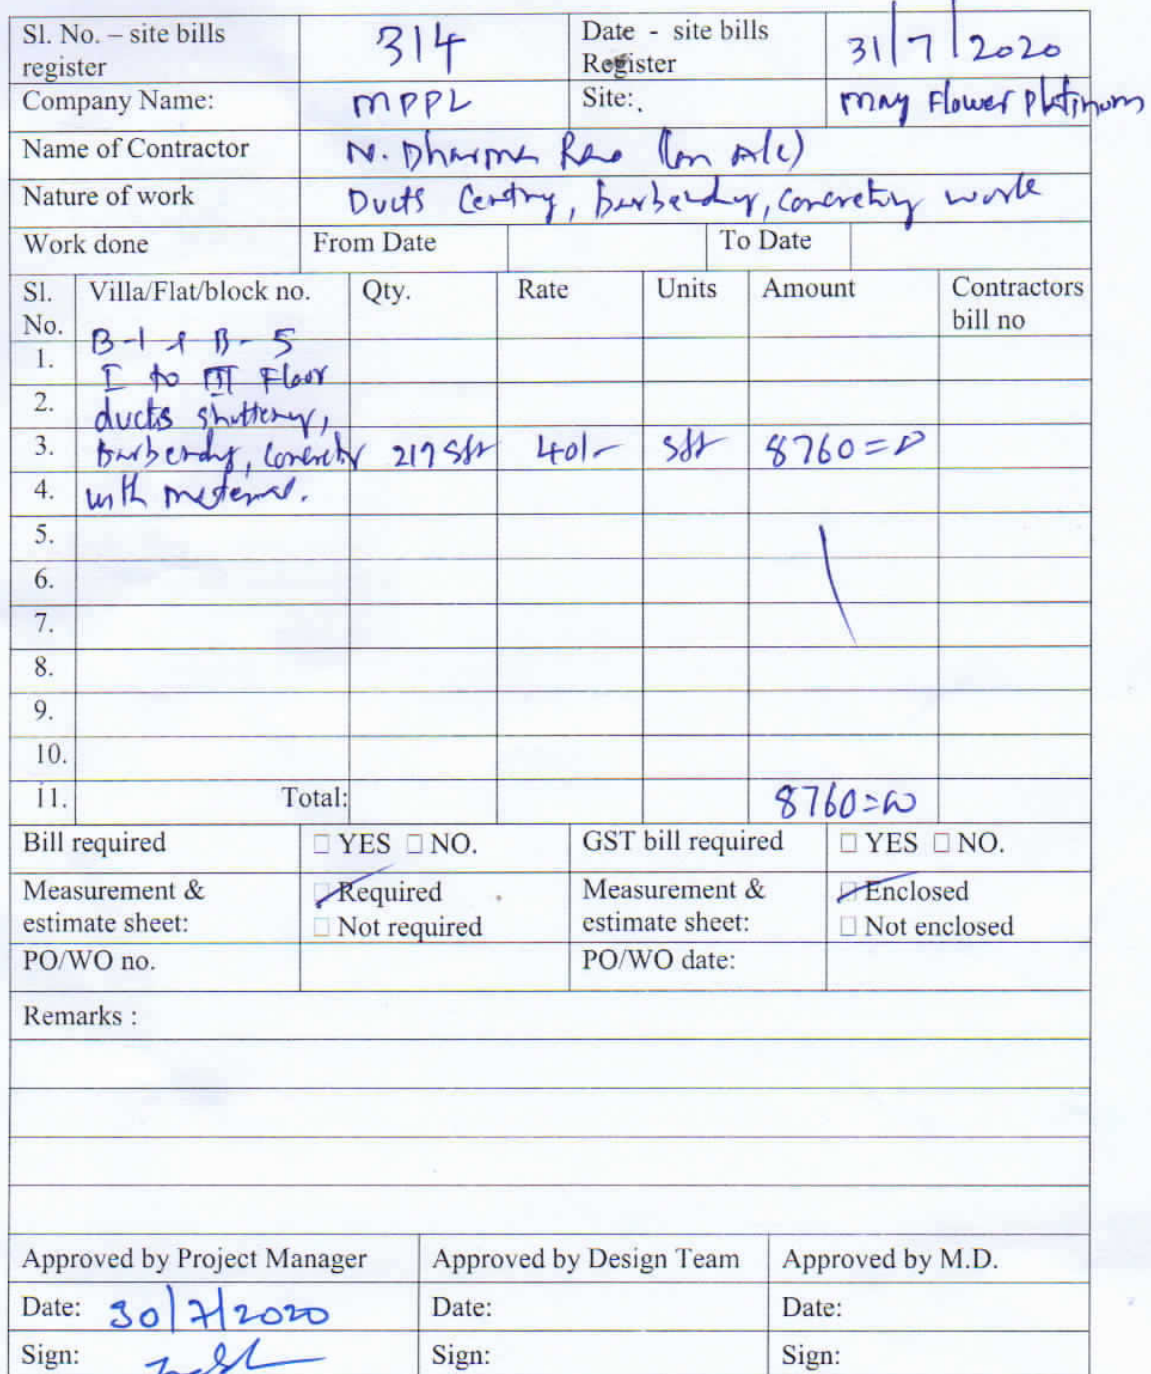 Sl. No. – site bills register 314 Date - site bills Register 31/7/2020
Company Name: MPPL Site: May Flower Platinum
Name of Contractor N. Dharma Rao (on A/c)
Nature of work Ducts Centry, barbendy, concreting work
Work done From Date To Date
Sl. No. Villa/Flat/block no. Qty. Rate Units Amount Contractors bill no
B-1 & B-5
1.
I to III Floor
2.
ducts shuttery,
3. barbendy, concrety 219 Sft 40/- sft 8760=00
4. with material.
5.
6.
7.
8.
9.
10.
11. Total: 8760=00
Bill required □ YES □ NO. GST bill required □ YES □ NO.
Measurement & estimate sheet: □ Required Measurement & estimate sheet: □ Enclosed
□ Not required □ Not enclosed
PO/WO no. PO/WO date:
Remarks :
Approved by Project Manager Approved by Design Team Approved by M.D.
Date: 30/7/2020 Date: Date:
Sign: Sign: Sign: